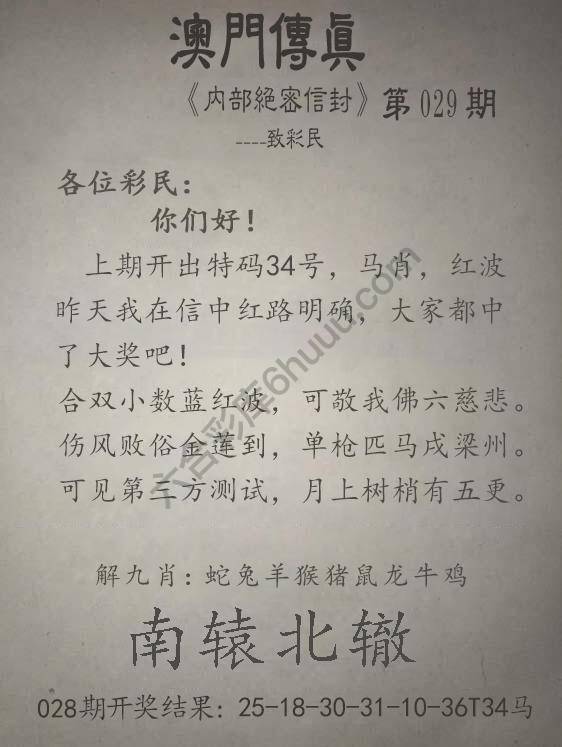 澳門傳眞
《内部絕密信封》第029期
----致彩民
各位彩民：
你们好！
上期开出特码34号，马肖，红波
昨天我在信中红路明确，大家都中
了大奖吧！
合双小数蓝红波，可敬我佛六慈悲。
伤风败俗金莲到，单枪匹马戌梁州。
可见第三方测试，月上树梢有五更。
解九肖：蛇兔羊猴猪鼠龙牛鸡
南辕北辙
028期开奖结果：25-18-30-31-10-36T34马
六合彩库6huuu.com